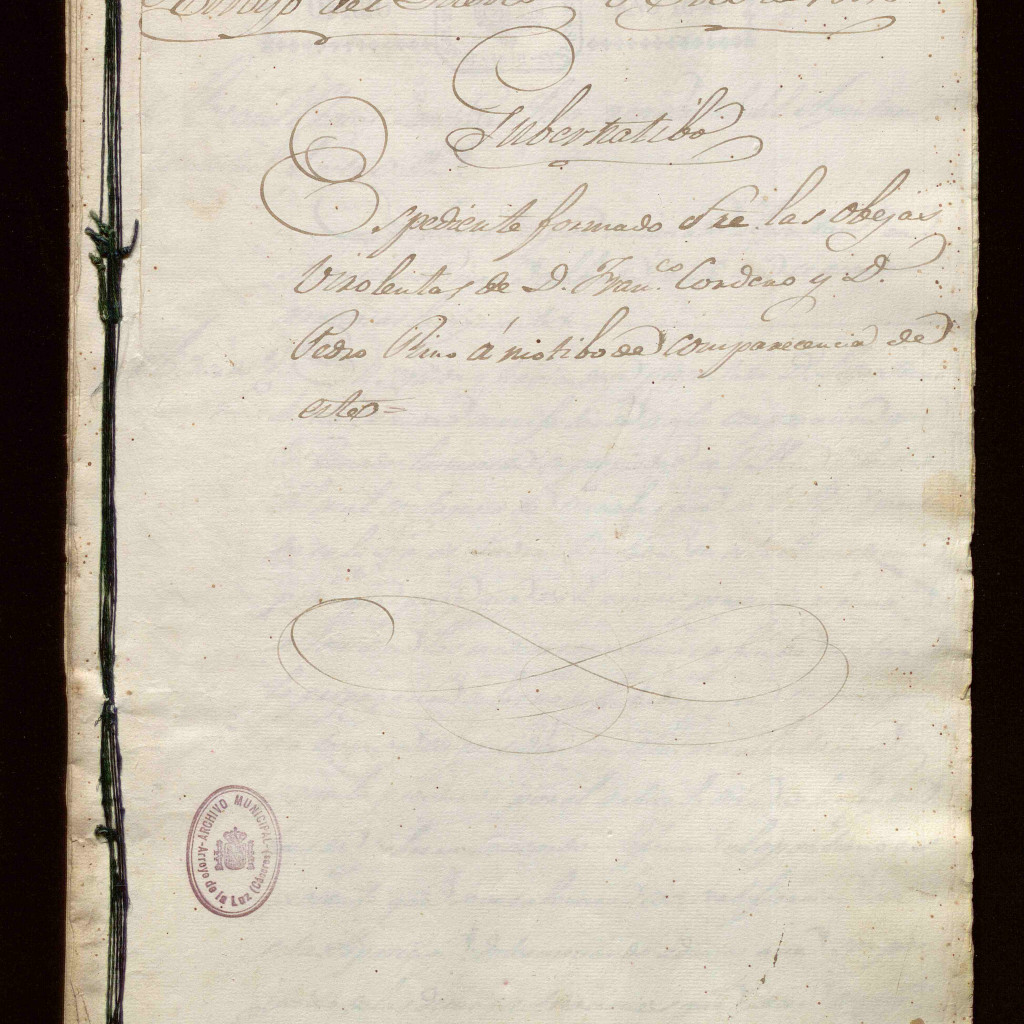 Arroyo del Puerco
Gubernatibo
Espediente formado Sre. las obejas
Virolentas de D. Franco. Cordero y D.
Pedro Rino á motibo de comparecencia de
estos=
ARCHIVO MUNICIPAL
Arroyo de la Luz (Cáceres)